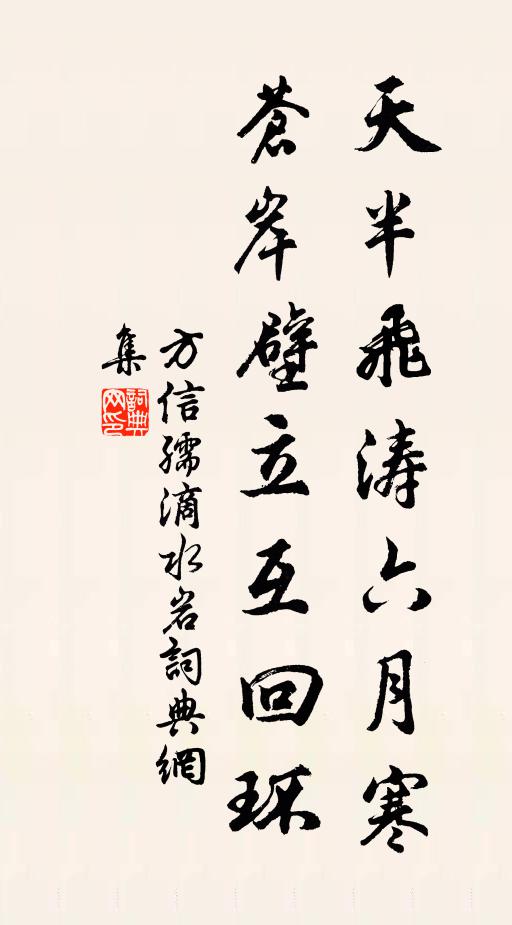 天半飛濤六月寒
蒼岸壁立互回环
方信孺滴水岩詞典網
集
詞典网印